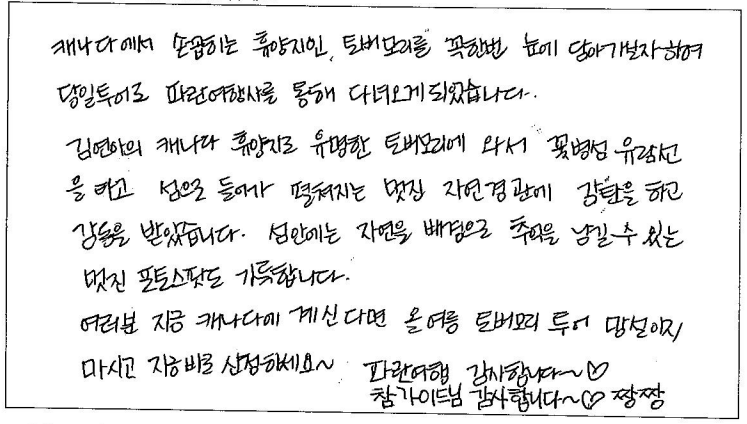 캐나다에서 손꼽히는 휴양지인, 토버모리를 꼭한번 눈에 담아가보자하여
당일투어로 파란여행사를 통해 다녀오게되었습니다.
김연아의 캐나다 휴양지로 유명한 토버모리에 와서 꽃병섬 유람선
을 타고 섬으로 들어가 펼쳐지는 멋진 자연경관에 감탄을 하고
감동을 받았습니다. 섬안에는 자연을 배경으로 추억을 남길수 있는
멋진 포토스팟도 가득합니다.
여러분 지금 캐나다에 계신다면 올여름 토버모리 투어 망설이지
마시고 지금바로 신청하세요~ 파란여행 감사합니다~♡
참가이드님 감사합니다~♡ 짱짱